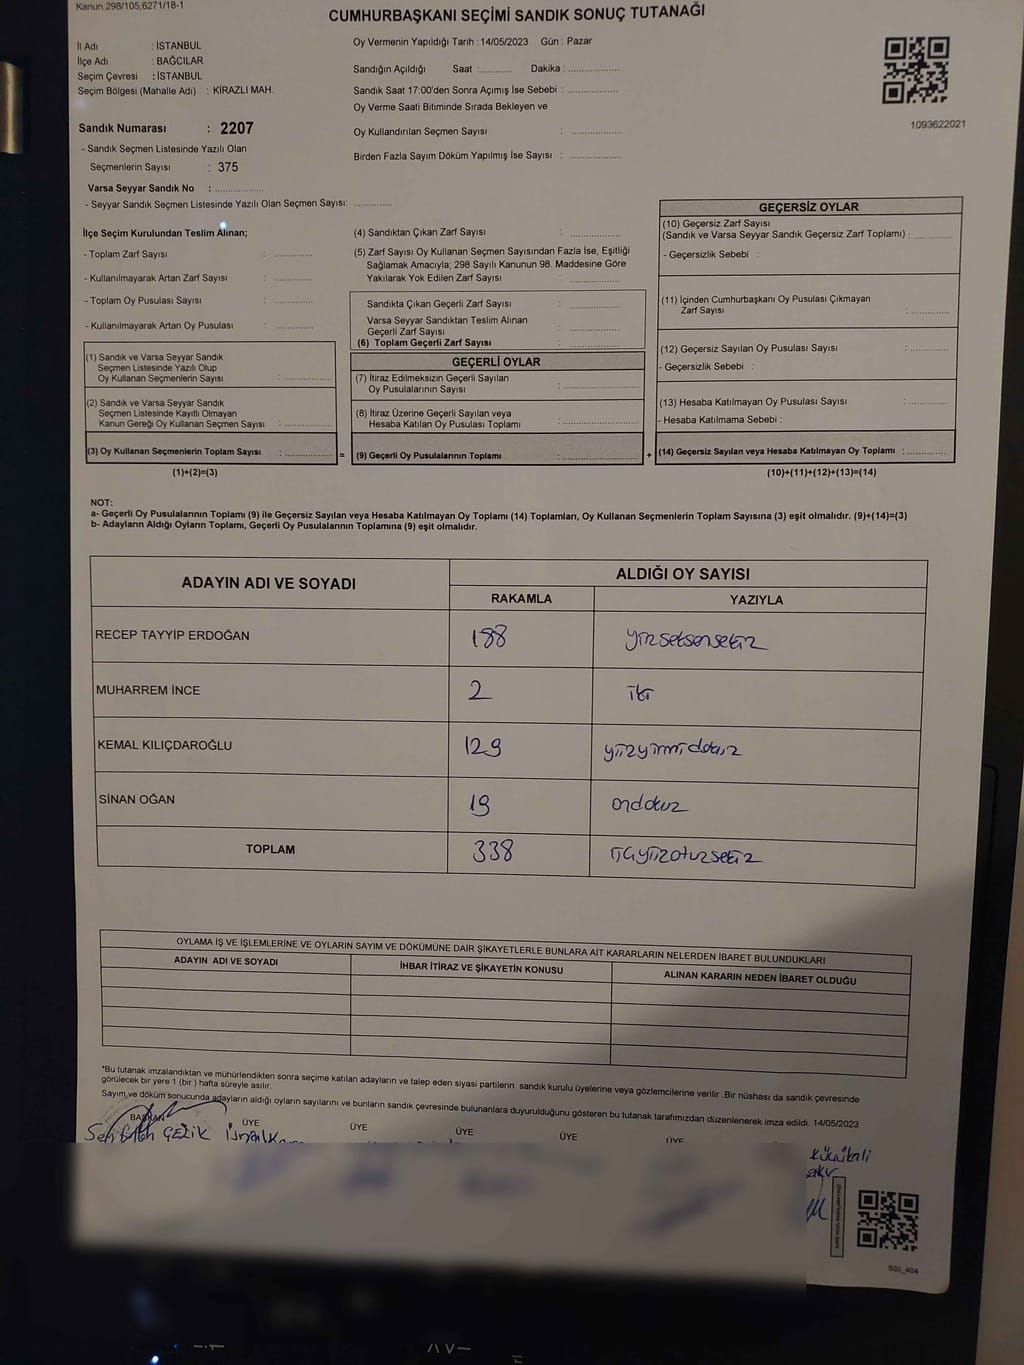 Kanun,298/105,6271/18-1
CUMHURBAŞKANI SEÇİMİ SANDIK SONUÇ TUTANAĞI
İl Adı : İSTANBUL
İlçe Adı : BAĞCILAR
Seçim Çevresi : İSTANBUL
Seçim Bölgesi (Mahalle Adı) : KİRAZLI MAH.
Sandık Numarası : 2207
- Sandık Seçmen Listesinde Yazılı Olan
Seçmenlerin Sayısı : 375
Varsa Seyyar Sandık No : ................
- Seyyar Sandık Seçmen Listesinde Yazılı Olan Seçmen Sayısı: .............
Oy Vermenin Yapıldığı Tarih : 14/05/2023 Gün : Pazar
Sandığın Açıldığı Saat :........... Dakika : .................
Sandık Saat 17:00'den Sonra Açımış İse Sebebi : .................
Oy Verme Saati Bitiminde Sırada Bekleyen ve
Oy Kullandırılan Seçmen Sayısı : .................
Birden Fazla Sayım Döküm Yapılmış İse Sayısı : .................
1093622021
İlçe Seçim Kurulundan Teslim Alınan;
- Toplam Zarf Sayısı : .............
- Kullanılmayarak Artan Zarf Sayısı : .............
- Toplam Oy Pusulası Sayısı : .............
- Kullanılmayarak Artan Oy Pusulası : .............
(1) Sandık ve Varsa Seyyar Sandık
Seçmen Listesinde Yazılı Olup
Oy Kullanan Seçmenlerin Sayısı : .................
(2) Sandık ve Varsa Seyyar Sandık
Seçmen Listesinde Kayıtlı Olmayan
Kanun Gereği Oy Kullanan Seçmen Sayısı : .................
(3) Oy Kullanan Seçmenlerin Toplam Sayısı : .................
(1)+(2)=(3)
(4) Sandıktan Çıkan Zarf Sayısı : .................
(5) Zarf Sayısı Oy Kullanan Seçmen Sayısından Fazla İse, Eşitliği
Sağlamak Amacıyla; 298 Sayılı Kanunun 98. Maddesine Göre
Yakılarak Yok Edilen Zarf Sayısı : .................
Sandıkta Çıkan Geçerli Zarf Sayısı : .................
Varsa Seyyar Sandıktan Teslim Alınan
Geçerli Zarf Sayısı : .................
(6) Toplam Geçerli Zarf Sayısı : .................
GEÇERLİ OYLAR
(7) İtiraz Edilmeksizin Geçerli Sayılan
Oy Pusulalarının Sayısı : .................
(8) İtiraz Üzerine Geçerli Sayılan veya
Hesaba Katılan Oy Pusulası Toplamı : .................
= (9) Geçerli Oy Pusulalarının Toplamı : .................
GEÇERSİZ OYLAR
(10) Geçersiz Zarf Sayısı
(Sandık ve Varsa Seyyar Sandık Geçersiz Zarf Toplamı) : .............
- Geçersizlik Sebebi :
(11) İçinden Cumhurbaşkanı Oy Pusulası Çıkmayan
Zarf Sayısı : .............
(12) Geçersiz Sayılan Oy Pusulası Sayısı : .............
- Geçersizlik Sebebi :
(13) Hesaba Katılmayan Oy Pusulası Sayısı : .............
- Hesaba Katılmama Sebebi :
+ (14) Geçersiz Sayılan veya Hesaba Katılmayan Oy Toplamı : .............
(10)+(11)+(12)+(13)=(14)
NOT:
a- Geçerli Oy Pusulalarının Toplamı (9) ile Geçersiz Sayılan veya Hesaba Katılmayan Oy Toplamı (14) Toplamları, Oy Kullanan Seçmenlerin Toplam Sayısına (3) eşit olmalıdır. (9)+(14)=(3)
b- Adayların Aldığı Oyların Toplamı, Geçerli Oy Pusulalarının Toplamına (9) eşit olmalıdır.
ADAYIN ADI VE SOYADI
ALDIĞI OY SAYISI
RAKAMLA YAZIYLA
RECEP TAYYİP ERDOĞAN 188 yüzseksensekiz
MUHARREM İNCE 2 iki
KEMAL KILIÇDAROĞLU 129 yüzyirmidokuz
SİNAN OĞAN 19 ondokuz
TOPLAM 338 üçyüzotuzsekiz
OYLAMA İŞ VE İŞLEMLERİNE VE OYLARIN SAYIM VE DÖKÜMÜNE DAİR ŞİKAYETLERLE BUNLARA AİT KARARLARIN NELERDEN İBARET BULUNDUKLARI
ADAYIN ADI VE SOYADI İHBAR İTİRAZ VE ŞİKAYETİN KONUSU ALINAN KARARIN NEDEN İBARET OLDUĞU
*Bu tutanak imzalandıktan ve mühürlendikten sonra seçime katılan adayların ve talep eden siyasi partilerin sandık kurulu üyelerine veya gözlemcilerine verilir .Bir nüshası da sandık çevresinde
görülecek bir yere 1 (bir ) hafta süreyle asılır.
Sayım ve döküm sonucunda adayların aldığı oyların sayılarını ve bunların sandık çevresinde bulunanlara duyurulduğunu gösteren bu tutanak tarafımızdan düzenlenerek imza edildi. 14/05/2023
BAŞKAN ÜYE ÜYE ÜYE ÜYE ÜYE
ÇELİK
SSI_404